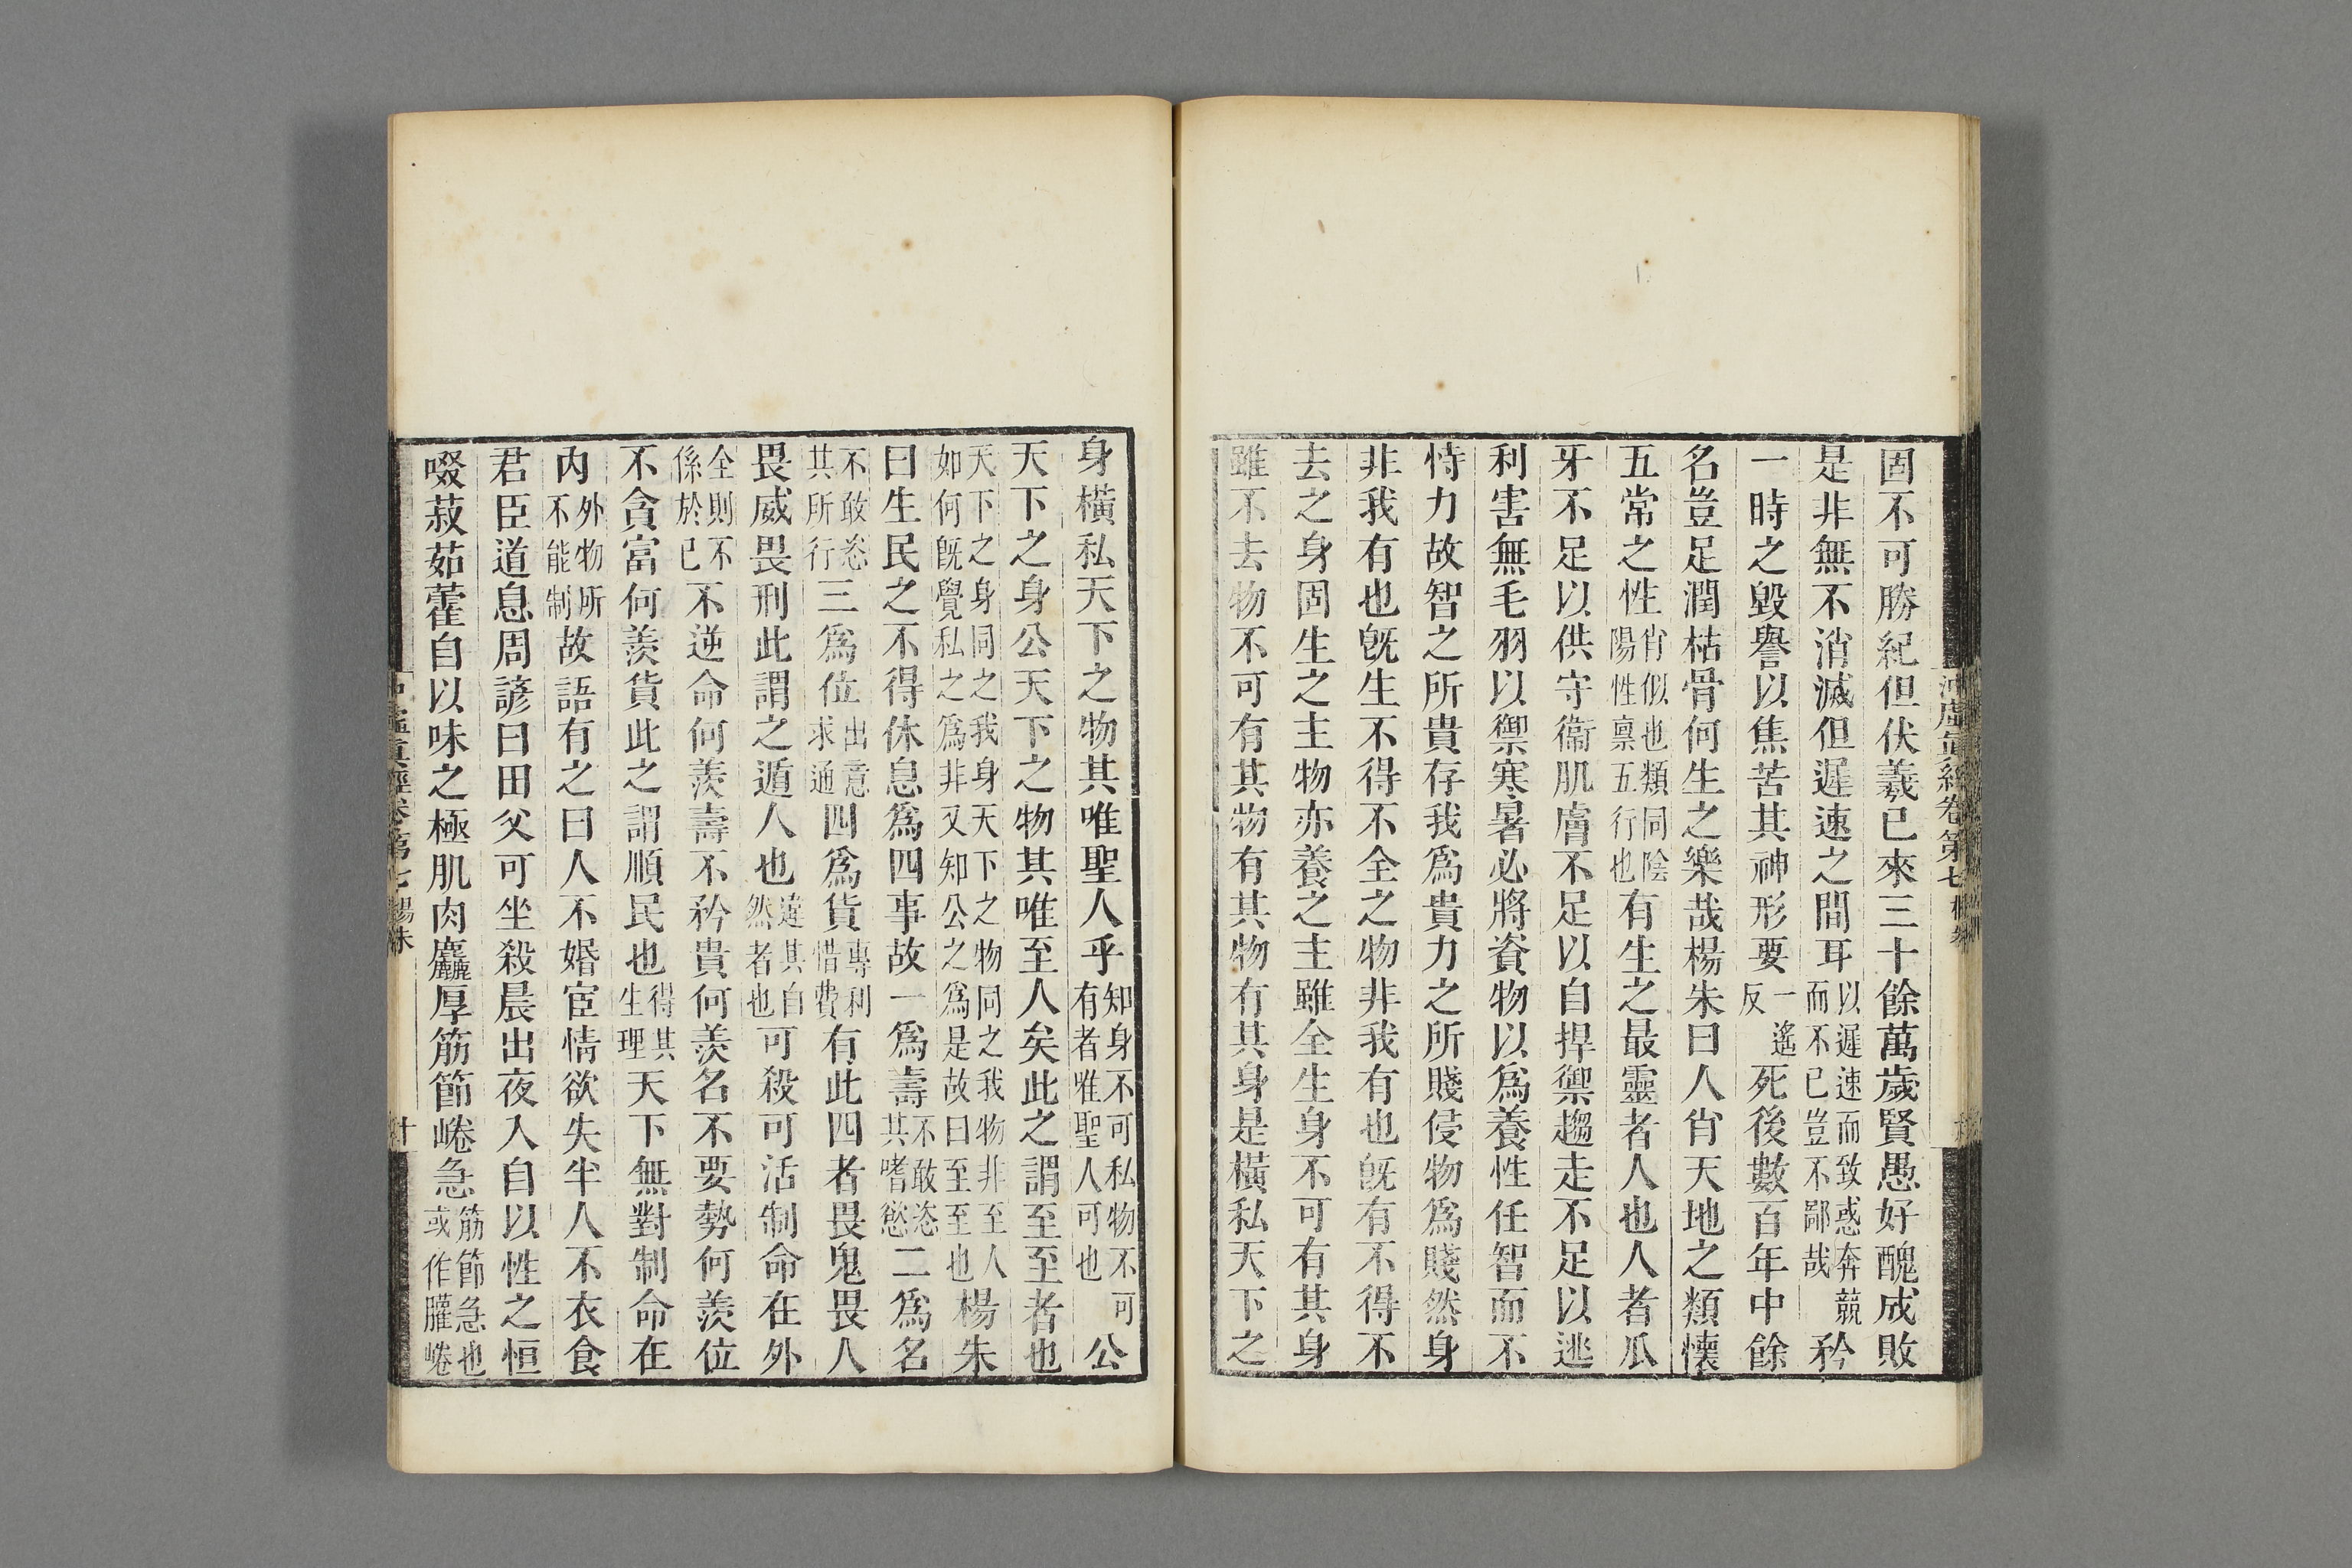 固不可勝紀但伏羲已來三十餘萬歲賢愚好醜成敗
是非無不消滅但遲速之間耳以遲速而致惑奔競而不已豈不鄙哉矜
一時之毀譽以焦苦其神形要一遙反死後數百年中餘
名豈足潤枯骨何生之樂哉楊朱曰人肖天地之類懷
五常之性肖似也類同陰陽性禀五行也有生之最靈者人也人者瓜
牙不足以供守衞肌膚不足以自捍禦趨走不足以逃
利害無毛羽以禦寒暑必將資物以爲養性任智而不
恃力故智之所貴存我爲貴力之所賤侵物爲賤然身
非我有也旣生不得不全之物非我有也旣有不得不
去之身固生之主物亦養之主雖全生身不可有其身
雖不去物不可有其物有其物有其身是橫私天下之
身橫私天下之物其唯聖人乎知身不可私物不可有者唯聖人可也公
天下之身公天下之物其唯至人矣此之謂至至者也
天下之身同之我身天下之物同之我物非至人如何旣覺私之爲非又知公之爲是故曰至至也楊朱
曰生民之不得休息爲四事故一爲壽不敢恣其嗜慾二爲名
不敢恣其所行三爲位出意求通四爲貨專利惜費有此四者畏鬼畏人
畏威畏刑此謂之遁人也違其自然者也可殺可活制命在外
全則不係於己不逆命何羨壽不矜貴何羨名不要勢何羨位
不貪富何羨貨此之謂順民也得其生理天下無對制命在
內外物所不能制故語有之曰人不婚宦情欲失半人不衣食
君臣道息周諺曰田父可坐殺晨出夜入自以性之恒
啜菽茹藿自以味之極肌肉麤厚筋節㟡急筋節急也或作臛㟡
沖虛眞經卷第七 楊朱
十